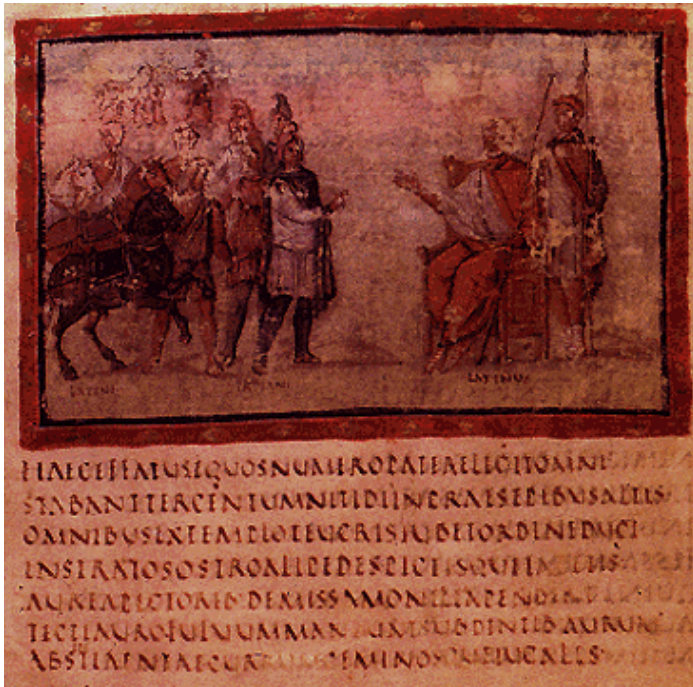 LATINI TROIANI LATINUS
HAECEFFATUSEQUOSNUMEROPATERELEGITOMNI
STABANTTERCENTUMNITIDIINPRAESEPIBUSALTIS
OMNIBUSEXTEMPLOTEUCRISIUBETORDINEDUCI
INSTRATOSOSTROALIPEDESPICTISQUE
AUREAPECTORIB·DEMISSAMONILIAPENDENT
TECTIAUROFULUUMMANDUNTSUBDENTIB·AURUM
ABSENTIAENEAECURRUMGEMINOSQUEIUGALES